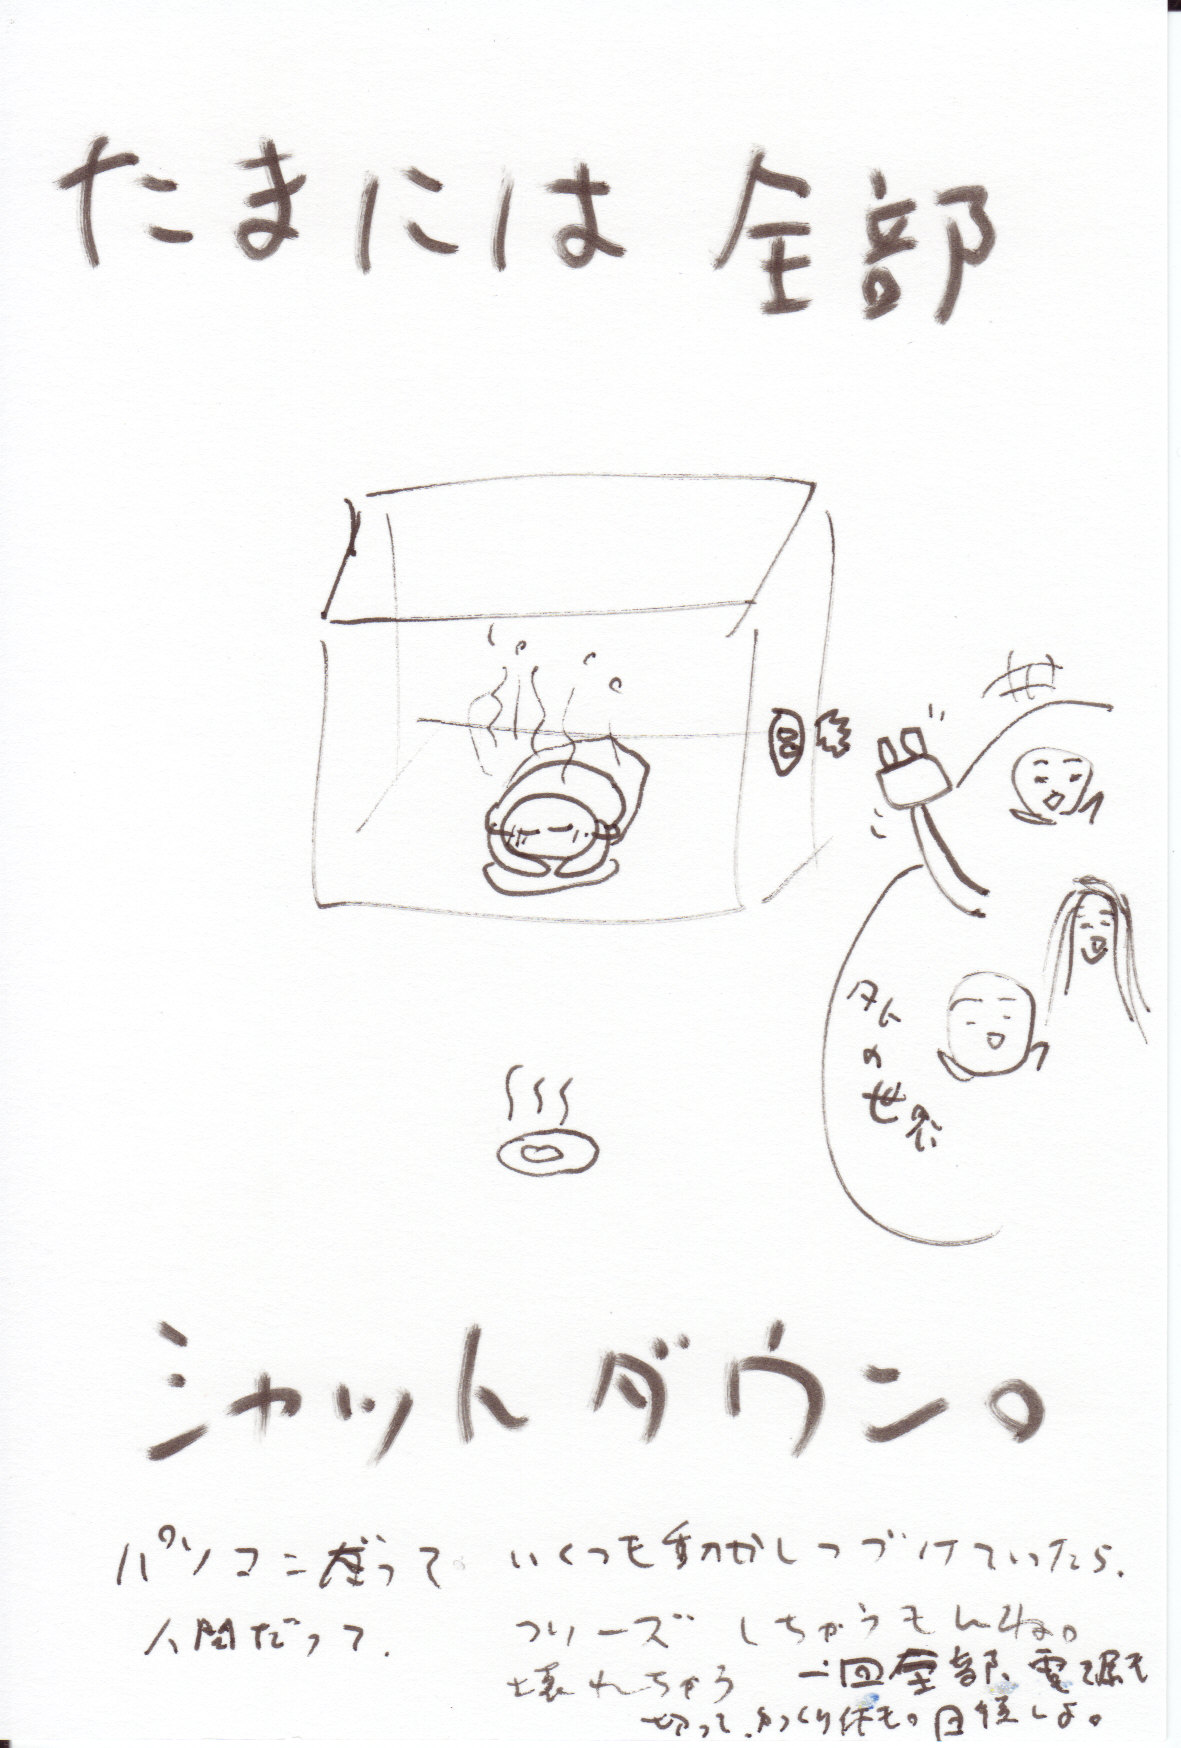 たまには 全部
外の世界
シャットダウン。
パソコンだって いくつも動かしつづけていたら、
人間だって、 フリーズ しちゃうもんね。
壊れちゃう 一回全部、電源も
切って、ゆっくり休も。